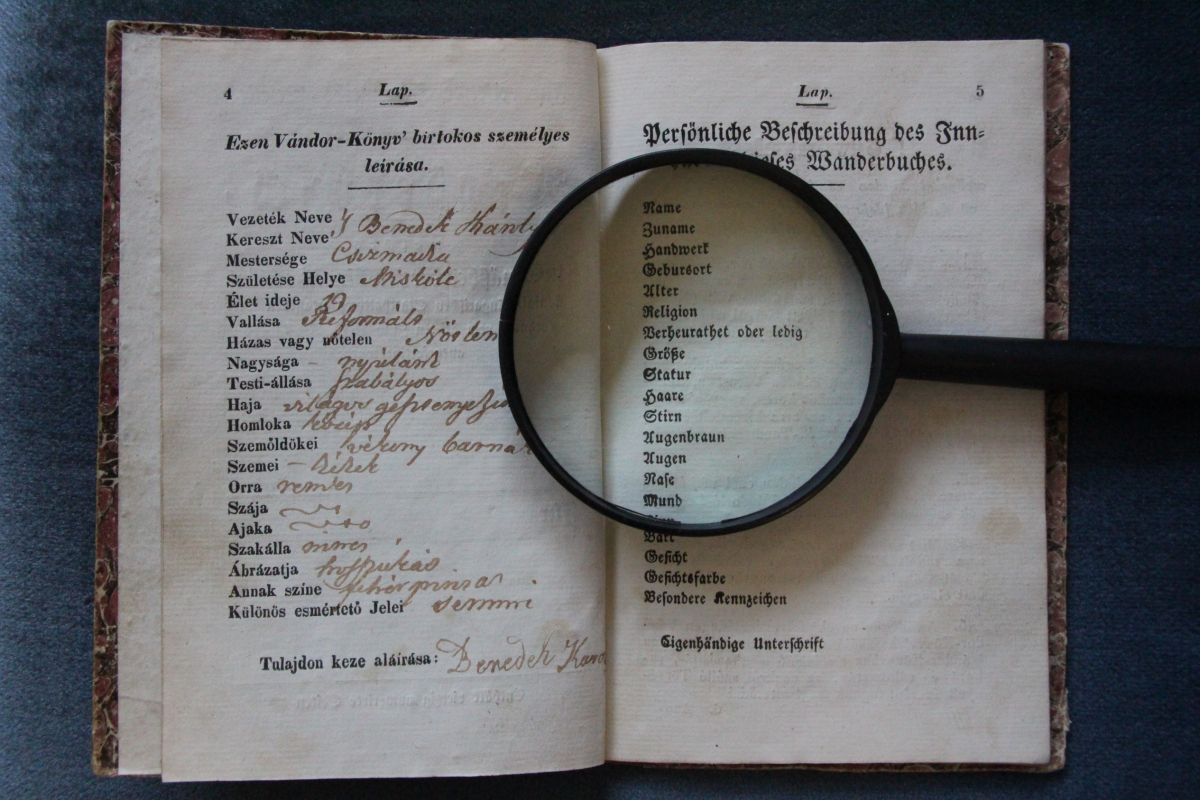 4
Lap.
Ezen Vándor-Könyv' birtokos személyes
leírása.
Vezeték Neve
Kereszt Neve' Benedek Károly
Mestersége Csizmadia
Születése Helye Miskólc
Élet ideje 19
Vallása Reformáts
Házas vagy nőtelen Nőtlen
Nagysága – nyúlánk
Testi-állása szabályos
Haja világos
Homloka közép
Szemöldökei vékony barnás
Szemei – kékek
Orra rendes
Szája
Ajaka
Szakálla nincs
Ábrázatja hosszukás
Annak színe
Különös esmértető Jelei semmi
Tulajdon keze aláírása: Benedek Karo
Lap.
5
Persönliche Beschreibung des Inn=
dieses Wanderbuches.
Name
Zuname
Handwerk
Gebursort
Alter
Religion
Verheurathet oder ledig
Größe
Statur
Haare
Stirn
Augenbraun
Augen
Nase
Mund
Bart
Gesicht
Gesichtsfarbe
Besondere Kennzeichen
Eigenhändige Unterschrift